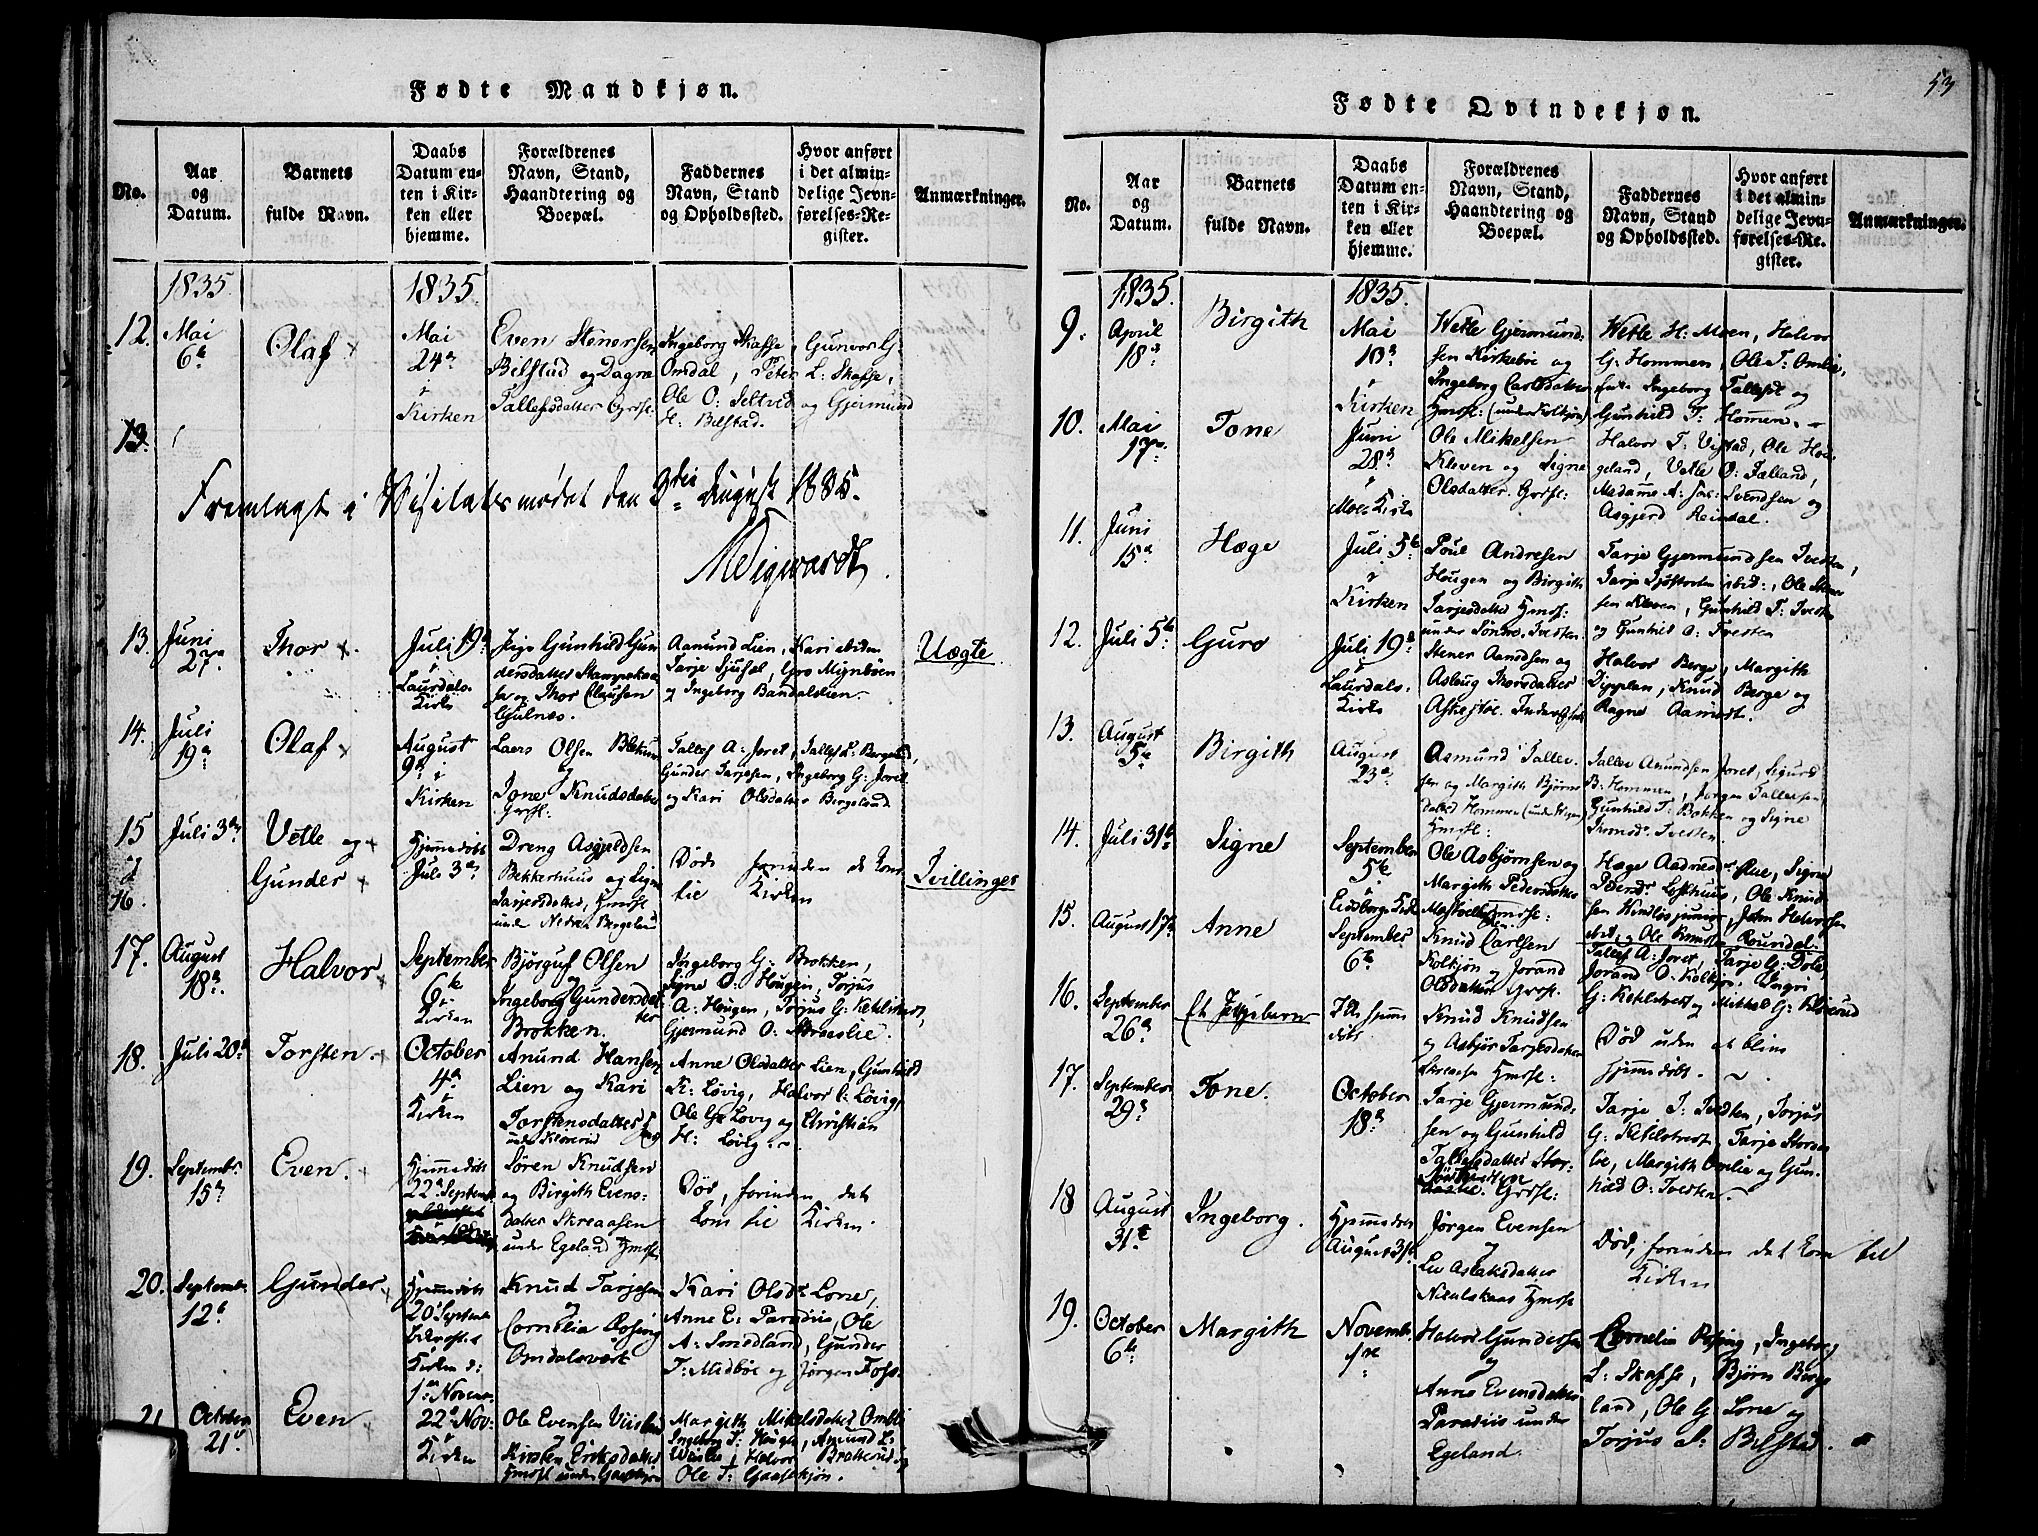 53
Fødte Mandkjøn.
No.
Aar
og
Datum.
Barnets
fulde Navn.
Daabs
Datum en-
ten i Kir-
ken eller
hjemme.
Forældrenes
Navn, Stand,
Haandtering og
Boepæl.
Faddernes
Navn, Stand
og Opholdssted.
Hvor anført
i det almin-
delige Jevn-
førelses-Re-
gister.
Anmærkninger.
1835.
1835.
12.
Mai
6te
Olaf
Mai
24de
i
Kirken
Even Stenersen
Bilstad og Dagne
Tallefsdatter Grdfl:
Ingeborg Skaffse, Gunvor G:
Omdal, Peter L: Skaffse,
Ole O: Seltveid og Gjermund
H: Bilstad.
13.
Fremlagt i Visitatsmødet den August 1835.
13.
Juni
27.
Thor
Juli 19de
i
Laurdals
Kirke
Pige Gunhild Gun
dersdatter
og Thor Olsen
Gulnæs.
Aamund Lien, Kari ibiden
Tarje Gro
og Ingeborg Bandakslien.
Uægte
14.
Juli
19de
Olaf
August
9de i
Kirken
Laers Olsen
og
Tone Knudsdatter
Grdfl.
Tallef A: Joret, Tallef L: Bergeland,
Gunder Tarjesen, Ingeborg G: Joret
og Kari Olsdatter Bergeland
15
Juli 3die
Vetle og
Hjemmedøbt
Juli 3die
Dreng Asgjeldsen
Bekkerhuus og Signe
Tarjesdatter, Hmdfl
under Nedre Bergeland
Døde forinden de kom
til Kirken
Tvillinger
16.
Gunder
17.
August
18de
Halvor
September
6te
i
Kirken
Bjørguf Olsen
og
Ingeborg Gundersdat
ter
Brokken.
Ingeborg G: Brokken,
Signe O: Hougen, Torjus
A: Hougen, Torjus G: Ketilstveit,
Gjermund O: Straaslie.
18.
Juli 20de
Torsten
October
4de
i
Kirken
Anund Hansen
Lien og Kari
Torstensdatter
under
Anne Olsdatter Lien, Gunhild
K: Løvig, Halvor C: Løvig,
Ole G: Løvig og Christian
H: Løvig
19.
Septembr
15de
Even
Hjemmedøbt
22de Septemb
Søren Knudsen
og Birgith Evens-
datter Skreaasen
under Egeland Hmdfl
Død, forinden det
kom til Kirken.
20.
Septemb
12te
Gunder
Hjemmedøbt
20de Septemb
bekræftet i
Kirken d:
1ste Novem.
Knud Tarjesen
og
Cornelia Røsing
Omdalsvært
Kari Olsdr Lone,
Anne E: Paradiis, Ole
A: Sunddland, Gunder
T: Midbøe og Jørgen Foss.
21
October
21de
Even
22de Nov.
i
Kirken
Ole Evensen Viislie
og
Kirsten Eriksdatter
Hmdfl under
Margith Mikelsdatter Omlie
Ingeborg T: Hougen, Anund L:
Viislie, Halvor Bratterud og
Ole T: Gaasekjøn.
Fødte Qvindekjøn.
No.
Aar
og
Datum.
Barnets
fulde Navn.
Daabs
Datum en-
ten i Kir-
ken eller
hjemme.
Forældrenes
Navn, Stand,
Haandtering og
Boepæl.
Faddernes
Navn, Stand
og Opholdssted.
Hvor anført
i det almin-
delige Jevn-
førelses-Re-
gister.
Anmærkninger.
1835.
1835.
9.
April
18de
Birgith
Mai
10de
i
Kirken
Vetle Gjermund-
sen Kirkebøe og
Ingeborg Carlsdatter
Hmdfl: (under Kolkjøn)
Vetle H: Moen, Halvor
G: Hommen, Ole T: Omlie,
Ingeborg Tallefsdr og
Gunhild T: Hommen.
10.
Mai
17de
Tone
Juni
28de
i
Moe Kirke
Ole Mikelsen
Kleven og Signe
Olsdatter. Grdfl:
Halvor T: Vistad, Ole Hou-
geland, Vetle O: Talland,
Madamme A: Svendsen og
Asgjerd Reindal.
11.
Juni
15de
Hæge
Juli 5te
i
Kirken
Poul Andresen
Hougen og Birgith
Tarjesdatter Hmdfl:
under Søndre Tveten.
Tarje Gjermundsen Tveten,
Tarje Tjøstolsen ibid:, Ole Stener
sen Kleven, Gunhild T: Tveten
og Gunhild A: Tveten
12.
Juli 5te
Guro
Juli 19de
i
Laurdals.
Kirke
Stener Aamdsen og
Aslaug Thorsdatter
Halvor Berge, Margith
Dipplan, Knud Berge og
Ragne Aamodt.
13.
August
5te
Birgith
August
23de
Asmund Tallef
sen og Margith Bjørns
datter Hommen
Hmdfl:
Tallev Asmundsen Joret, Sigurd
B: Hommen, Jørgen Tallefsen,
Gunhild T: Bakken og Signe
Tveten
14.
Juli 31te
Signe
September
5te
i
Eidsborgs Kirke
Ole Asbjørnsen og
Margith Pedersdatter
Hmdfl:
Hæge Rue, Signe
Pedersdr Lofthuus, Ole Knud
sen junior, John Halvorsen
ibid, og Ole Knudsen Roundal.
15.
August 17de
Anne
September
6te
Knud Carlsen
Kolkjøn og Jorand
Olsdatter Grdfl.
Tallef A: Joret, Tarje G: Dale,
Jorand O: Kolkjøn, Ingri
G: Ketilstveit og Mikkel G:
16.
September
26de
Et Pigebarn
Ikke hjemme
døbt
Knud Knudsen
og Asbjør Tarjesdatter
Hmdfl:
Død uden at blive
hjemmedøbt.
17.
September
29de
Tone.
October
18de
Tarje Gjermund-
sen og Gunhild
Tallefsdatter
Grdfl:
Tarje T: Tveten, Torjus
G: Ketilstveit, Tarje
lie, Margith Omlie og Gun-
hild O: Tveten.
18
August
31te
Ingeborg.
Hjemmedøbt
August 31te
Jørgen Evensen
og
Liv Aslaksdatter
Hmdfl
Død, forinden det kom til
Kirken
19.
October
6te
Margith
Novemb.
1ste
Halvor Gundersen
og
Anne Evensdatter
Paradiis under
Egeland.
Cornelia Røsing, Ingeborg
L: Skaffse, Bjørn Berge
land, Ole G: Lone og
Torjus S: Bilstad.